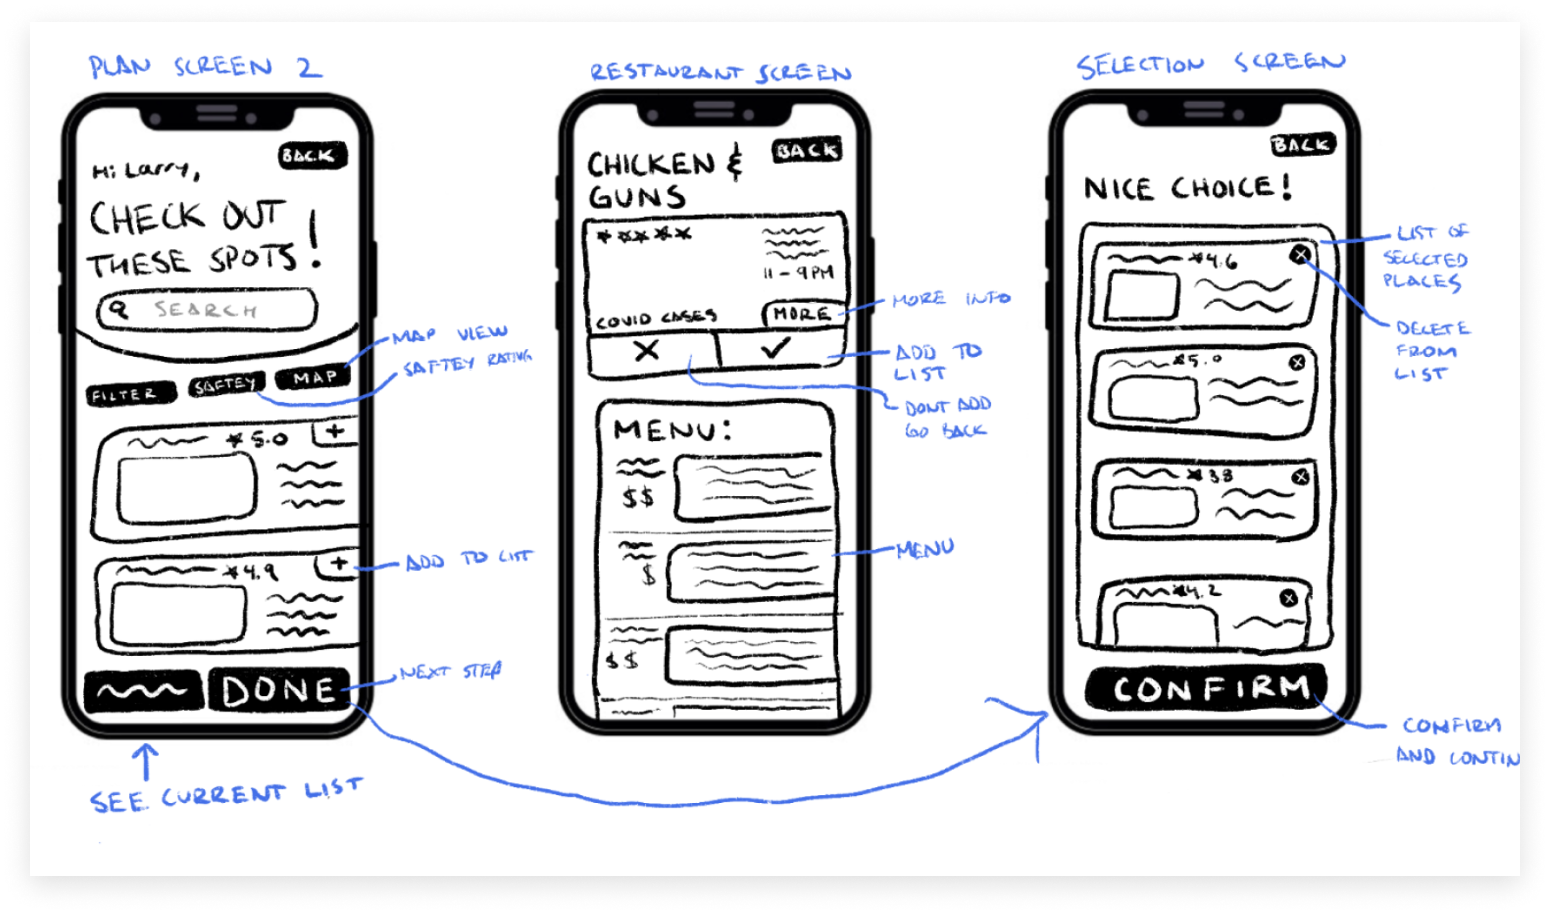 PLAN SCREEN 2
BACK
Hi Larry,
CHECK OUT
THESE SPOTS!
SEARCH
MAP VIEW
SAFTEY RATING
FILTER
SAFTEY
MAP
★5.0
+
★4.9
+
ADD TO LIST
DONE
NEXT STEP
SEE CURRENT LIST
RESTAURANT SCREEN
BACK
CHICKEN &
GUNS
★★★★★
11 - 9PM
COVID CASES
MORE
MORE INFO
X
✓
ADD TO
LIST
DONT ADD
GO BACK
MENU:
$$
$
$$
MENU
SELECTION SCREEN
BACK
NICE CHOICE!
LIST OF
SELECTED
PLACES
★4.6
X
DELETE
FROM
LIST
★5.0
X
★38
X
★4.2
X
CONFIRM
CONFIRM
AND CONTIN